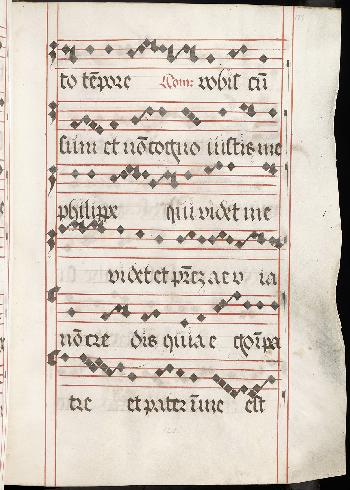 to tẽpore Com: vobis cũ
sum et nõ cognouistis me
philippe qui videt me
videt et prẽz ae v ia
nõ cre dis quia e goĩ pa
tre et pater ĩ me est